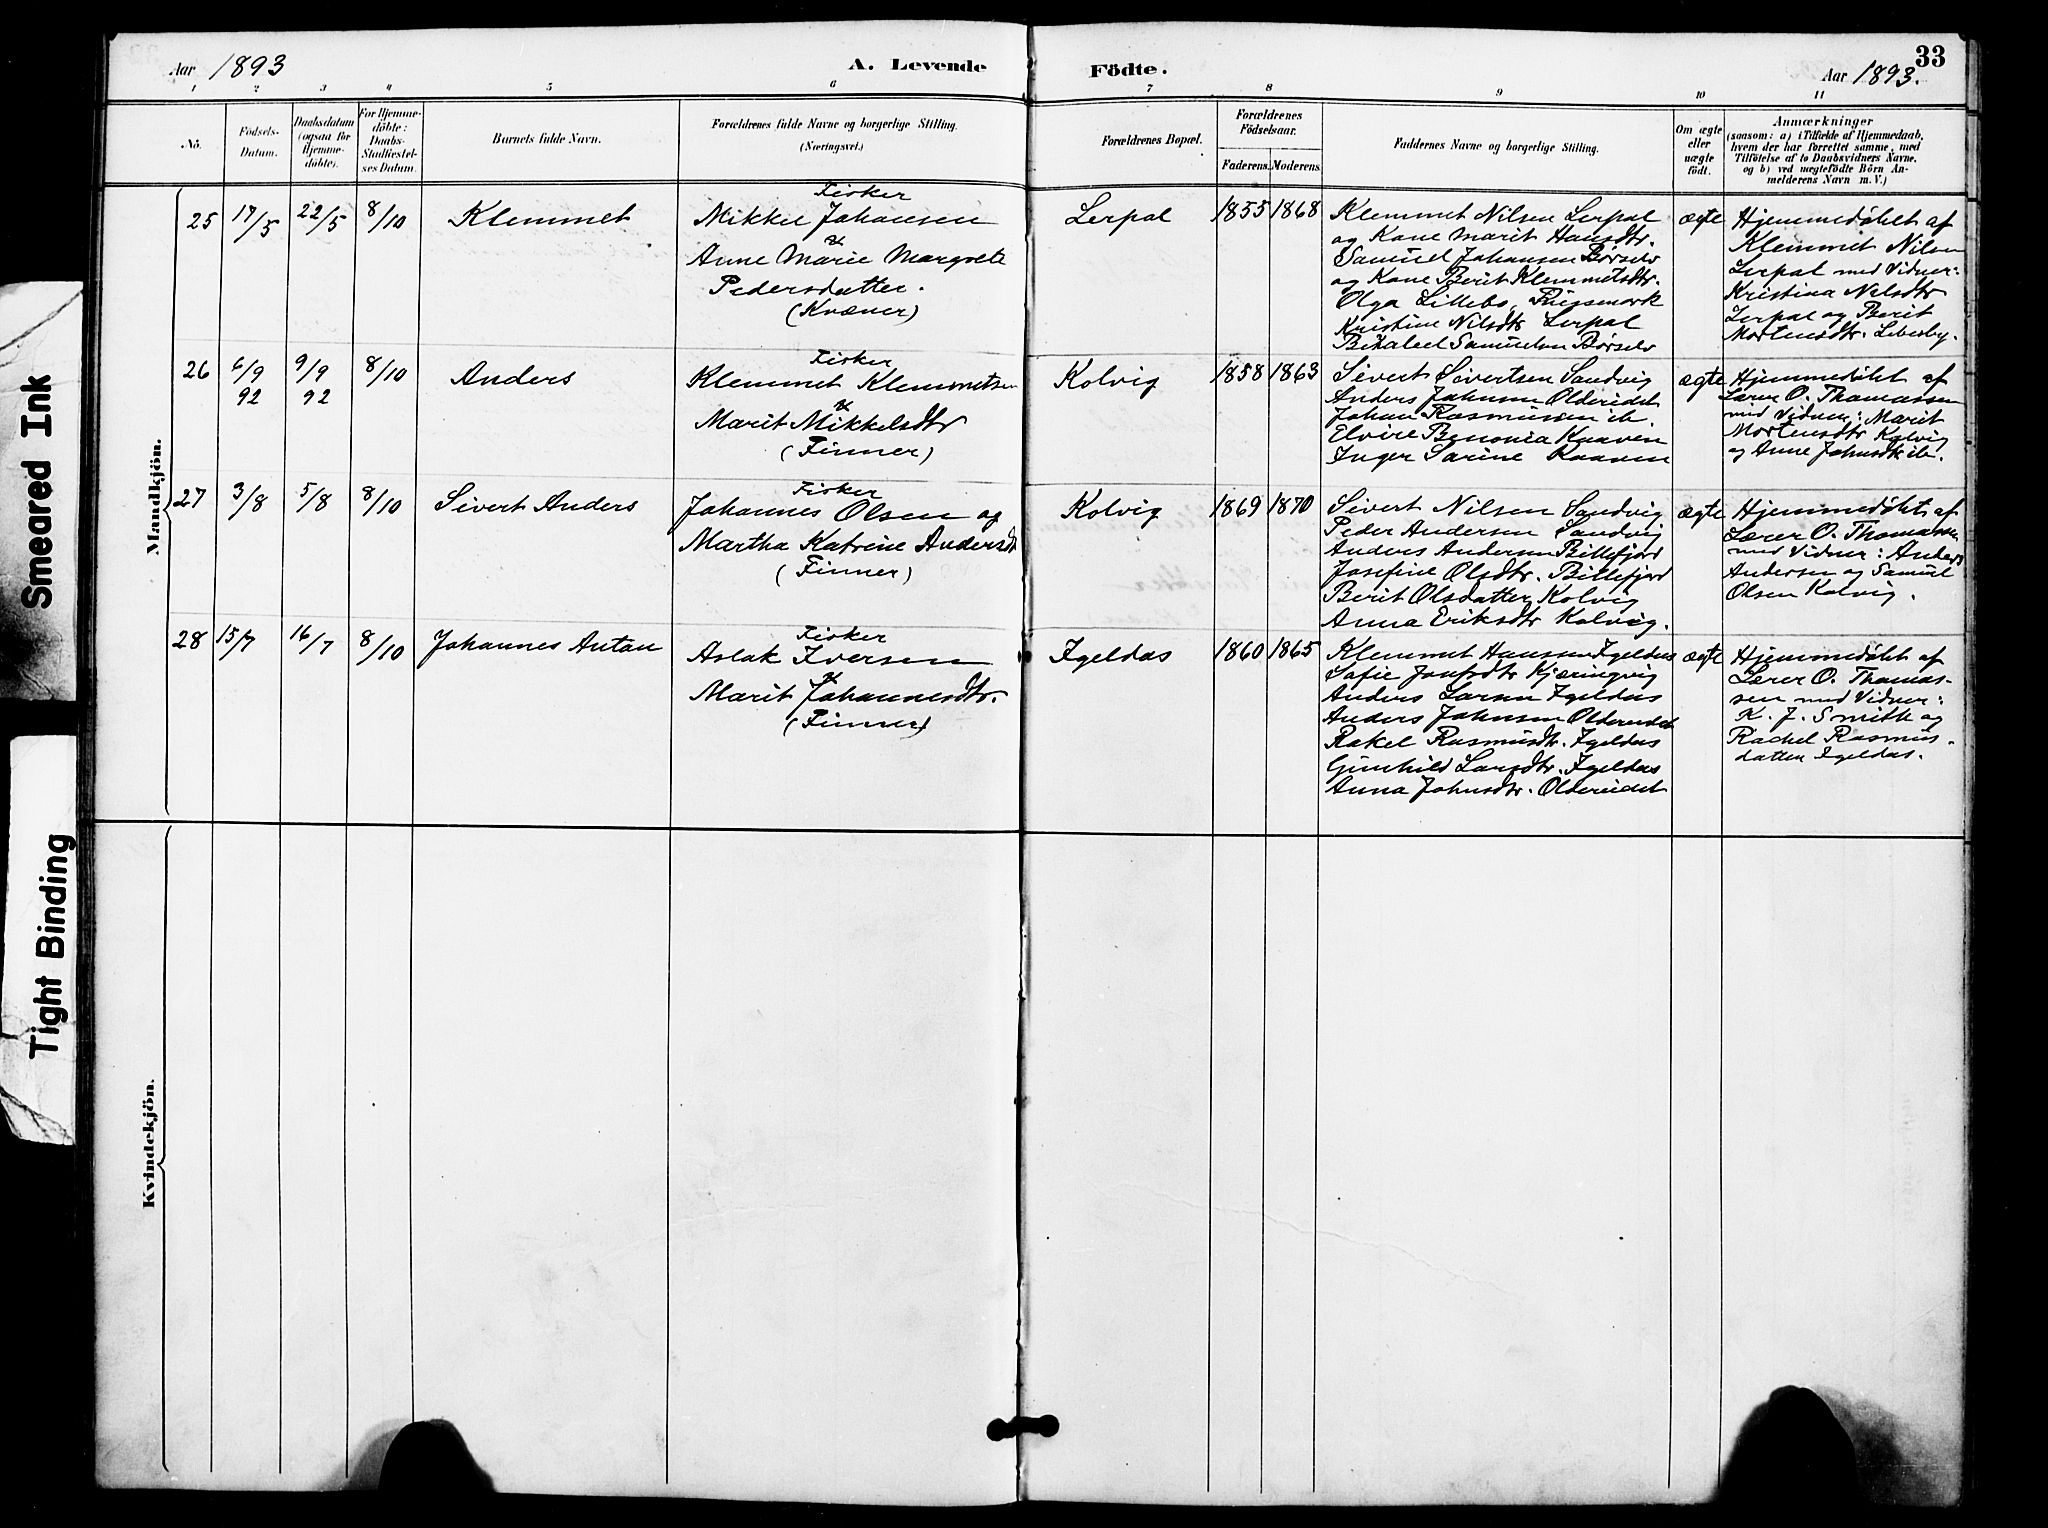 33
Aar 1893
A. Levende Födte.
Aar 1893.
1 2 3 4 5 6 7 8 9 10 11
No.
Födsels-
Datum.
Daabsdatum
(ogsaa for
Hjemme-
döbte).
For Hjemme-
döbte:
Daabs-
Stadfæstel-
ses Datum.
Barnets fulde Navn.
Forældrenes fulde Navne og borgerlige Stilling.
(Næringsvei.)
Forældrenes Bopæl.
Forældrenes
Födselsaar.
Faderens. Moderens.
Faddernes Navne og borgerlige Stilling.
Om ægte
eller
uægte
födt.
Anmærkninger
(saasom: a) i Tilfælde af Hjemmedaab,
hvem der har forrettet samme, med
Tilföielse af to Daabsvidners Navne,
og b) ved uægtefödte Börn An-
melderens Navn m. V.)
Mandkjön.
25 17/5 22/5 8/10 Klemmet
Fisker
Mikkel Johansen
&
Anne Marie Margrete
Pedersdatter.
(Kvæner)
Lerpol 1855 1868
Klemmet Nilsen Lerpol
og Kone Marit Hansdtr.
Samuel Johansen Børselv
og Kone Berit Klemmetsdtr.
Olga Lillebo,
Kristine Nilsdtr Lerpol
Samuelsen Børselv
ægte
Hjemmedøbt af
Klemmet Nilsen
Lerpol med Vidner:
Kristina Nilsdtr
Lerpol og Berit
Mortensdtr. Lebesby.
26 6/9 92 9/9 92 8/10 Anders
Fisker
Klemmet Klemmetsen
&
Marit Mikkelsdtr
(Finner)
Kolvig 1858 1863
Sivert Sivertsen Sandvig
Anders Johnsen Oldereidet
Johan Rasmussen ib.
Elvire Benonia Kaaven
Inger Sarine Kaaven
ægte
Hjemmedøbt af
Lærer O. Thomassen
med Vidner: Marit
Mortensdtr Kolvig
og Anne Johnsdtr ib.
27 3/8 5/8 8/10 Sivert Anders
Fisker
Johannes Olsen og
Martha Katrine Andersdt
(Finner)
Kolvig 1869 1870
Sivert Nilsen Sandvig
Peder Andersen Sandvig
Anders Andersen Billefjord
Josefine Olsdtr. Billefjord
Berit Olsdatter Kolvig
Anna Eriksdtr Kolvig.
ægte
Hjemmedøbt af
Lærer O. Thomassen
med Vidner: Anders
Andersen og Samuel
Olsen Kolvig.
28 15/7 16/7 8/10 Johannes Antan
Fisker
Aslak Iversen
&
Marit Johannesdtr.
(Finner)
Igeldas 1860 1865
Klemmet Hansen Igeldas
Sofie Josefsdtr Kjæringvig
Anders Larsen Igeldas
Anders Johnsen Oldereidet
Rakel Rasmusdtr. Igeldas
Gunhild Larsdtr. Igeldas
Anna Johnsdtr. Oldereidet
ægte
Hjemmedøbt af
Lærer O. Thomas-
sen med Vidner:
K. J. Smith og
Rachel Rasmus-
datter Igeldas.
Kvindekjön.
Smeared Ink
Tight Binding